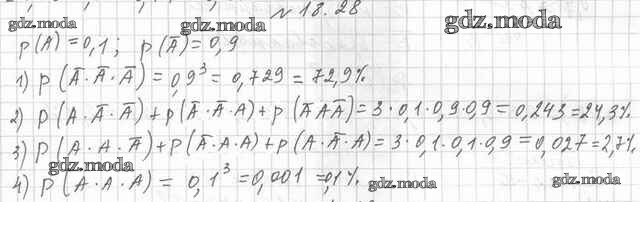 № 18.28
gdz.moda gdz.moda gdz.moda
p(A) = 0,1; p(Ā) = 0,9
1) p(Ā·Ā·Ā) = 0,9³ = 0,729 = 72,9%
2) p(A·Ā·Ā)+p(Ā·Ā·A)+p(ĀAĀ) = 3·0,1·0,9·0,9 = 0,243 = 24,3%
3) p(A·A·Ā)+p(Ā·A·A)+p(A·Ā·A) = 3·0,1·0,1·0,9 = 0,027 = 2,7%
gdz.moda
4) p(A·A·A) = 0,1³ = 0,001 = 0,1%
gdz.moda gdz.moda